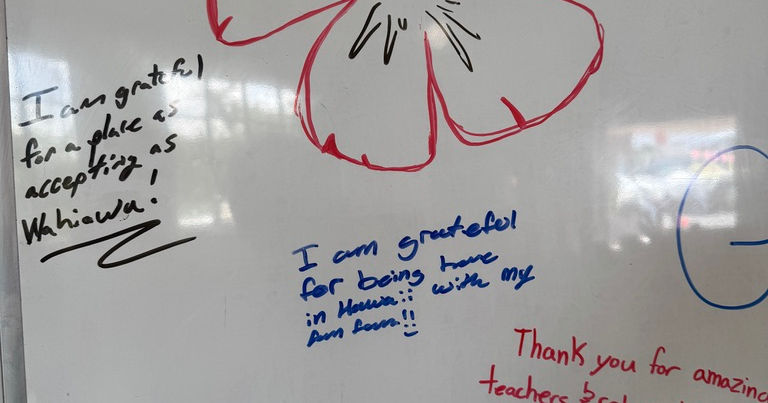 I am grateful
for a place as
accepting as
Wahiawa!
I am grateful
for being here
in Hawaii with my
fam fam!!
Thank you for amazing
teachers